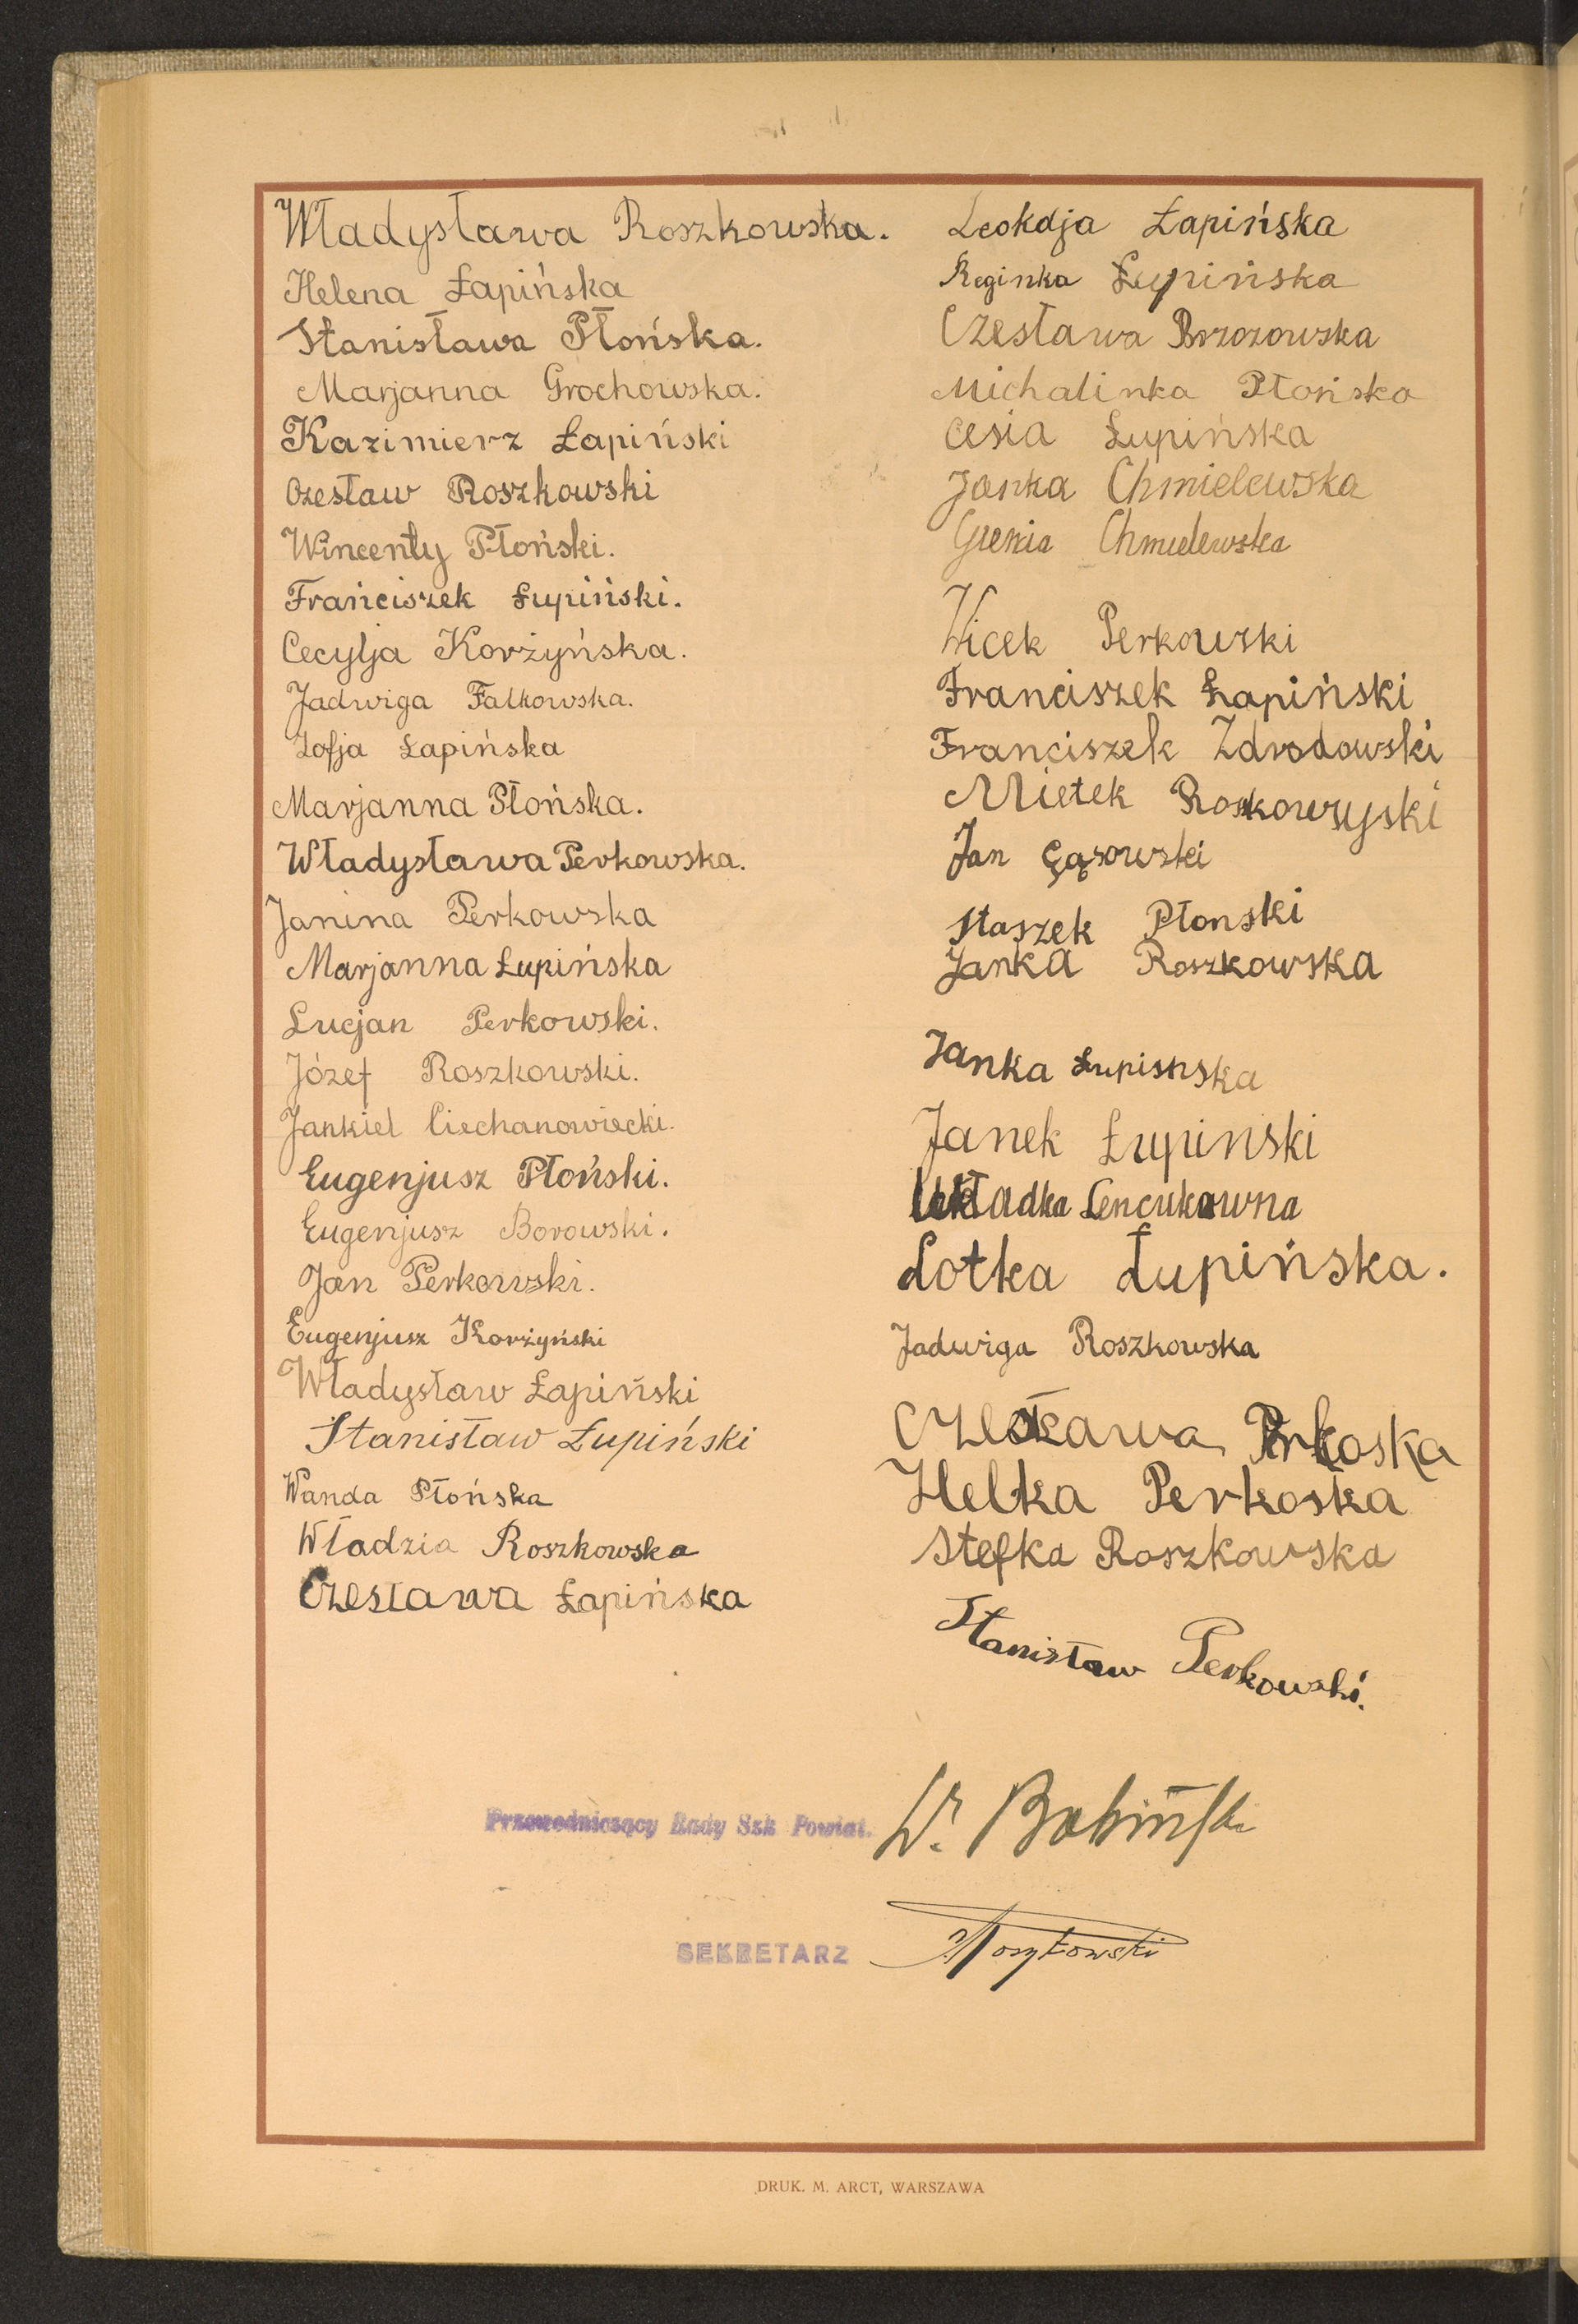 Władysława Roszkowska.
Helena Łapińska
Stanisława Płońska.
Marjanna Grochowska.
Kazimierz Łapiński
Czesław Roszkowski
Wincenty Płoński.
Frańciszek Łupiński.
Cecylja Korżyńska.
Jadwiga Falkowska.
Zofja Łapińska
Marjanna Płońska.
Władysława Perkowska.
Janina Perkowska
Marjanna Łupińska
Lucjan Perkowski.
Józef Roszkowski.
Jankiel Ciechanowiecki.
Eugenjusz Płoński.
Eugenjusz Borowski.
Jan Perkowski.
Eugenjusz Korżyński
Władysław Łapiński
Stanisław Łupiński
Wanda Płońska
Władzia Roszkowska
Czesława Łapińska
Leokdja Łapińska
Reginka Łupińska
Czesława Brzozowska
Michalinka Płońska
Cesia Łupińska
Janka Chmielewska
Gienia Chmielewska
Wicek Perkowski
Franciszek Łapiński
Franciszek Zdrodowski
Mietek
Jan Gąsowski
Staszek Płonski
Janka Roszkowska
Janka Łupisnska
Janek Łupinski
Władka Lencukowna
Lotka Łupińska.
Jadwiga Roszkowska
Perkoska
Helka Perkoska
Stefka Roszkowska
Stanisław Perkowski.
Przewodniczący Rady Szk Powiat.
SEKRETARZ
DRUK. M. ARCT, WARSZAWA